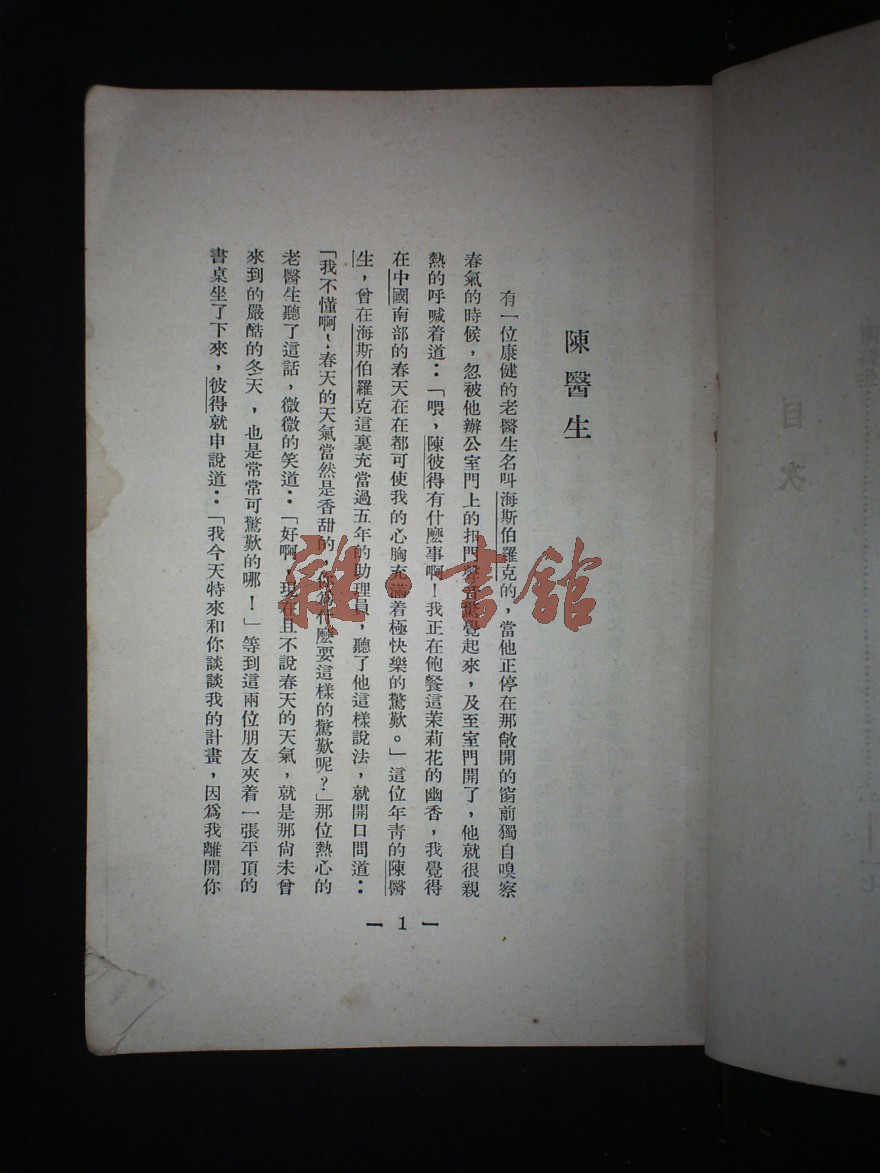 陳醫生
有一位康健的老醫生名叫海斯伯羅克的，當他正停在那敞開的窗前獨自嗅察
春氣的時候，忽被他辦公室門上的扣門聲音驚覺起來，及至室門開了，他就很親
熱的呼喊着道：「喂，陳彼得有什麼事啊！我正在飽餐這茉莉花的幽香，我覺得
在中國南部的春天在在都可使我的心胸充滿着極快樂的驚歎。」這位年青的陳醫
生，曾在海斯伯羅克這裏充當過五年的助理員，聽了他這樣說法，就開口問道：
「我不懂啊！春天的天氣當然是香甜的，你爲什麼要這樣的驚歎呢？」那位熱心的
老醫生聽了這話，微微的笑道：「好啊，現在且不說春天的天氣，就是那尙未曾
來到的嚴酷的冬天，也是常常可驚歎的哪！」等到這兩位朋友夾着一張平頂的
書桌坐了下來，彼得就申說道：「我今天特來和你談談我的計畫，因爲我離開你
— 1 —
雜·書館
目次